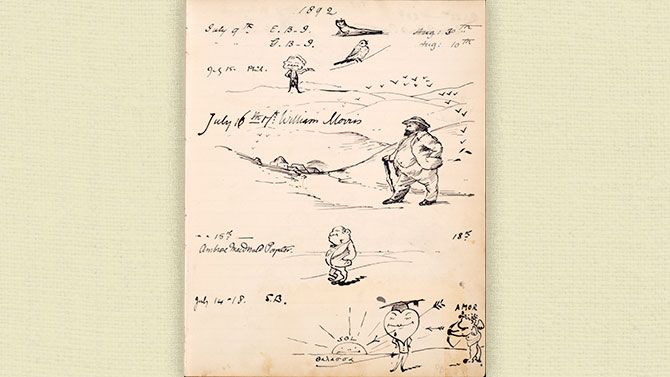 1892
July 9th. E. B-J. Aug: 30th
" " G. B-J. Aug: 10th
July 15. Phil.
July 16th 17th. William Morris
18th 18th
Ambrose Macdonald Poynter.
July 14-18. S.B.
AMOR
SOL
ΘΑΛΑΣΣΑ